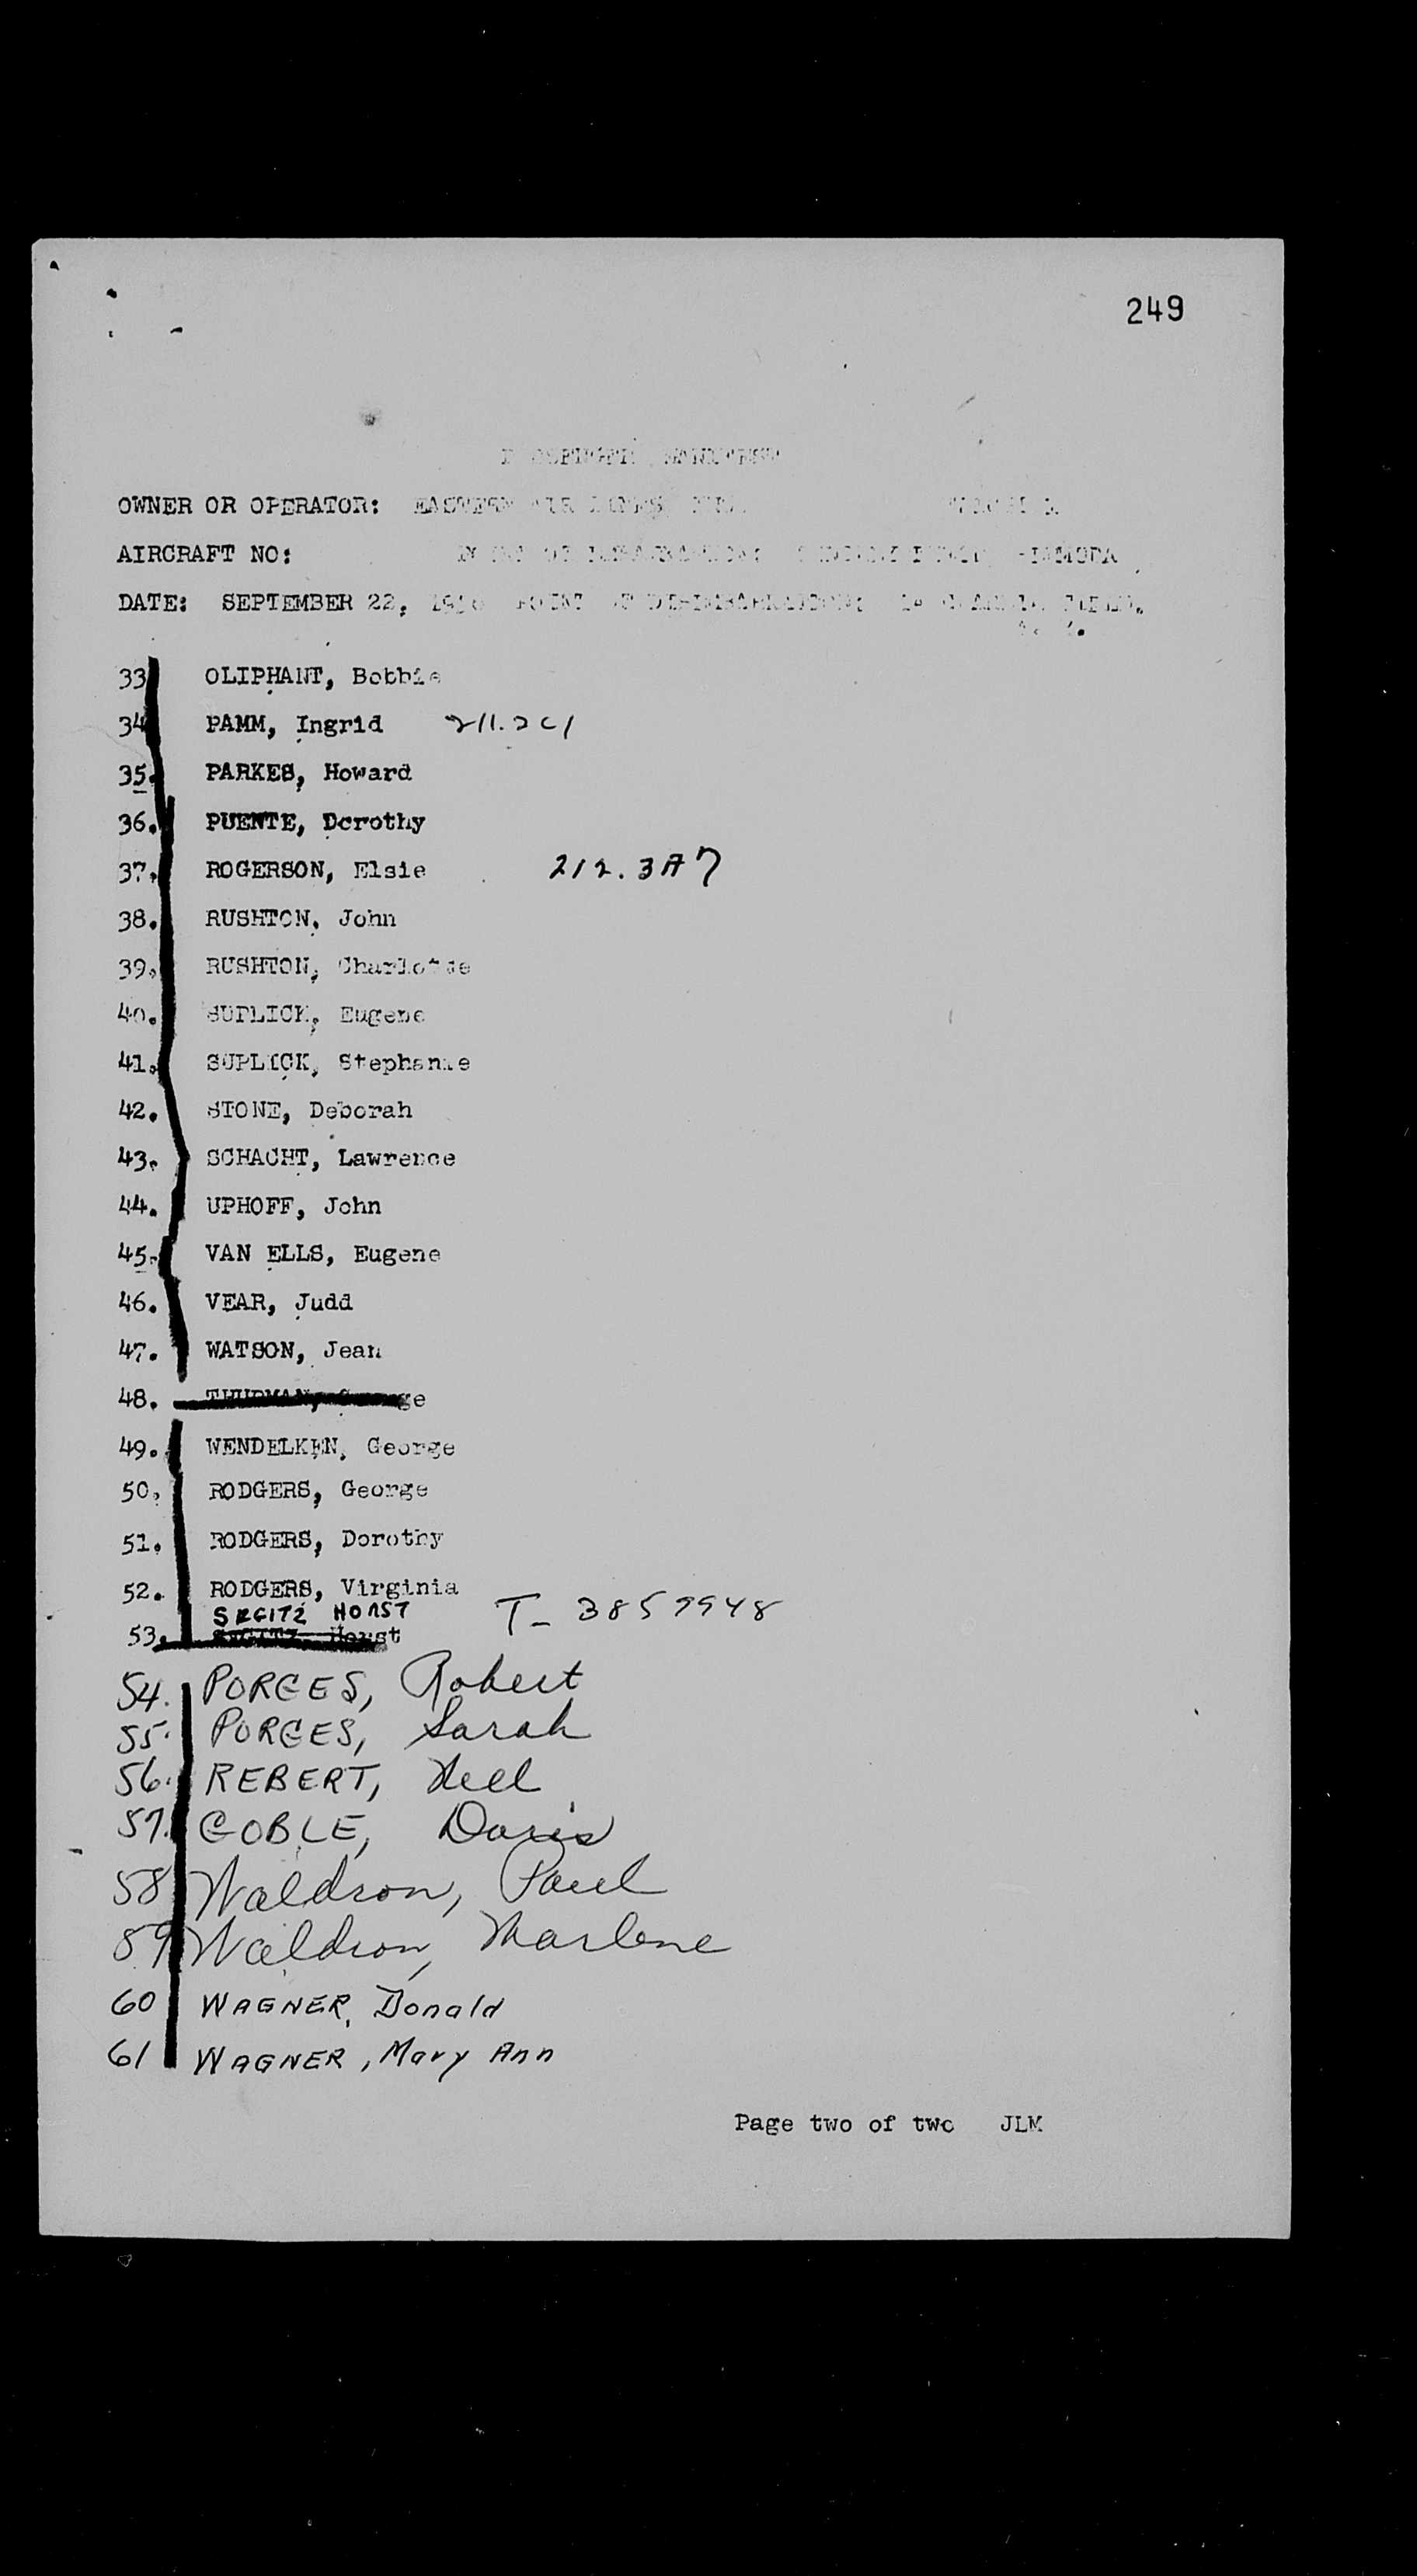 249
OWNER OR OPERATOR: EASTERN AIR LINES
AIRCRAFT NO:
DATE: SEPTEMBER 22, POINT OF
33 OLIPHANT, Bobbie
34 PAMM, Ingrid 211.2C1
35. PARKES, Howard
36. PUENTE, Dorothy
37. ROGERSON, Elsie 212.3A7
38. RUSHTON, John
39. RUSHTON, Charlotte
40. SUPLICK, Eugene
41. SUPLICK, Stephanie
42. STONE, Deborah
43. SCHACHT, Lawrence
44. UPHOFF, John
45. VAN ELLS, Eugene
46. VEAR, Judd
47. WATSON, Jean
48.
49. WENDELKEN, George
50. RODGERS, George
51. RODGERS, Dorothy
52. RODGERS, Virginia
HORST T- 3859948
53. Horst
54. PORGES, Robert
55. PORGES, Sarah
56. REBERT, Nell
57. GOBLE, Doris
58 Waldron, Paul
59 Waldron, Marlene
60 WAGNER, Donald
61 WAGNER, Mary Ann
Page two of two JLM